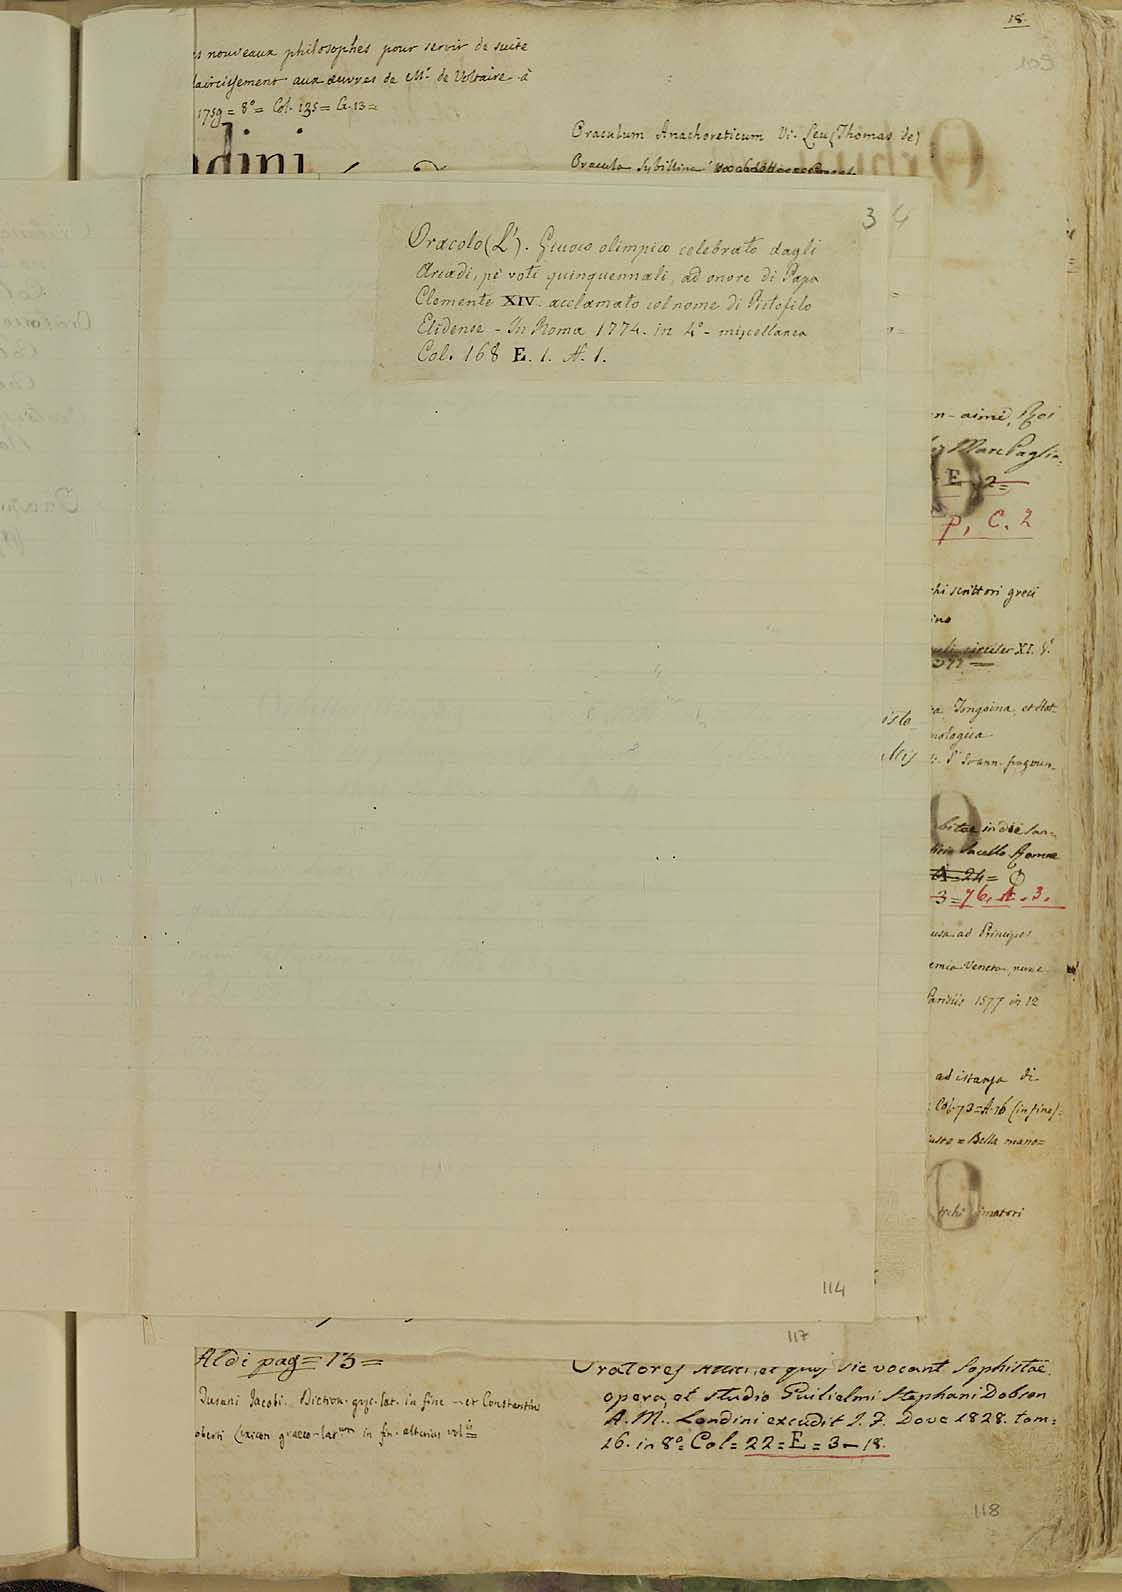 18.
nouveaux philosophes pour servir de suite
aux œuvres de Mr. de Voltaire à
1759 = 8º = Col. 135 = G. 13 =
dini
Oraculum Anachoreticum Vi. Leu (Thomas de)
Oracula Sybillina
34
Oracolo (L'). Giuoco olimpico celebrato dagli
Arcadi, pe' voti quinquennali, ad onore di Papa
Clemente XIV. acclamato col nome di Pistofilo
Elidense - In Roma 1774. in 4º - miscellanea
Col. 168 E. 1. H. 1.
n-aimé, Roi
Marc Paglia
E 2=
P, C. 2
chi scrittori greci
ino
circiter XI. 8º
et Stat-
nologica
Joann. fragmen-
bitae in die San-
Sacello Romae
A = 24 =
3 = 76. A. 3.
ad Principes
emia Veneta, nunc
Parisiis 1577 in 12
ad istanza di
Col. 73 = A. 16 (in fine) =
= Bella mano =
imatori
114
117
Aldi pag = 13 =
Dusani Jacobi. Diction. gr. lat. in fine - et Constantini
oberti Lexicon graeco-latum in fin. alterius vol.
Oratores Attici, et quos sic vocant Sophistae,
opera et studio Guilielmi Stephani Dobson
A. M. Londini excudit J. F. Dove 1828. tom:
16. in 8º = Col = 22 = E = 3 - 18.
118